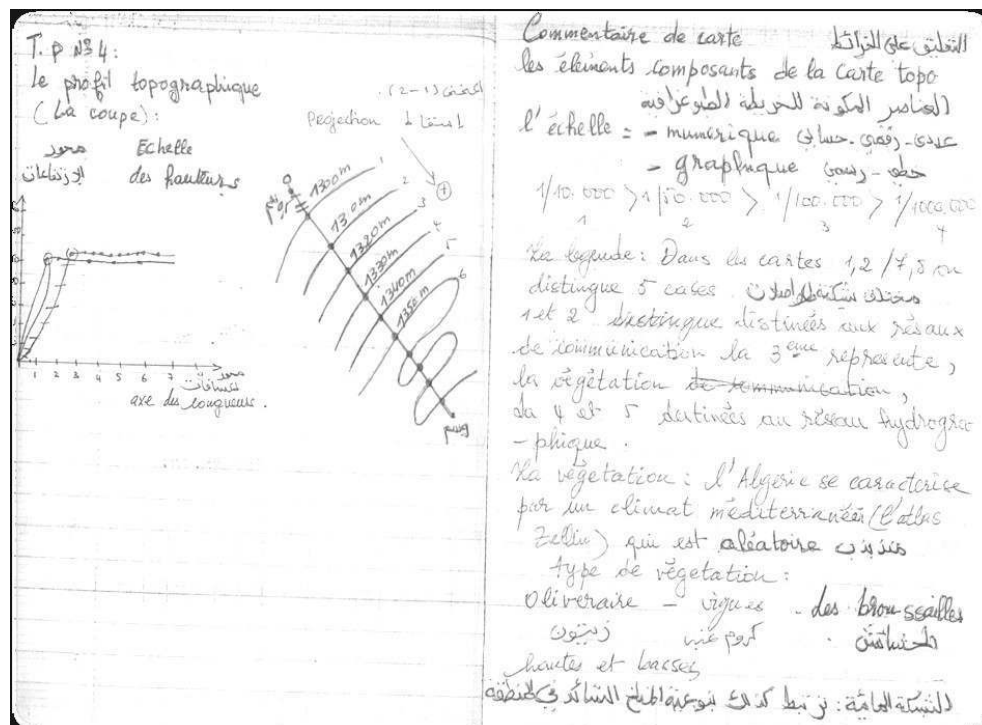 T.P N°4:
Le profil topographique
(La coupe):
محور Echelle
الإرتفاعات des hauteurs
(2-1)
Projection إسقاط
0
1300m 1
130m 2
1320m 3
1330m 4
1340m 5
1350m 6
1 2 3 4 5 6 7
محور
المسافات
axe des longueurs.
Commentaire de carte التعليق على الخرائط
les éléments composants de la Carte topo
العناصر المكونة للخريطة الطبوغرافية
l'échelle = - numérique عددي - رقمي - حسابي
- graphique خطي - رسمي
1/10.000 > 1/50.000 > 1/100.000 > 1/1000.000
1 2 3 4
La légende: Dans les cartes 1,2 /7,5 on
distingue 5 cases. مختلف شبكة المواصلات
1 et 2 distingue distinées aux résaux
de communication la 3ème représente,
la végétation de communication,
La 4 et 5 destinées au réseau hydrogra
-phique.
La végétation: l'Algérie se caracterise
par un climat méditerranéen (l'atlas
Tellin) qui est aléatoire متذبذب
type de végetation:
Oliveraire - vignes - des broussailles
زيتون كروم عنب
hautes et basses
الشبكة المائية: ترتبط كذلك بنوعية المناخ السائد في المنطقة